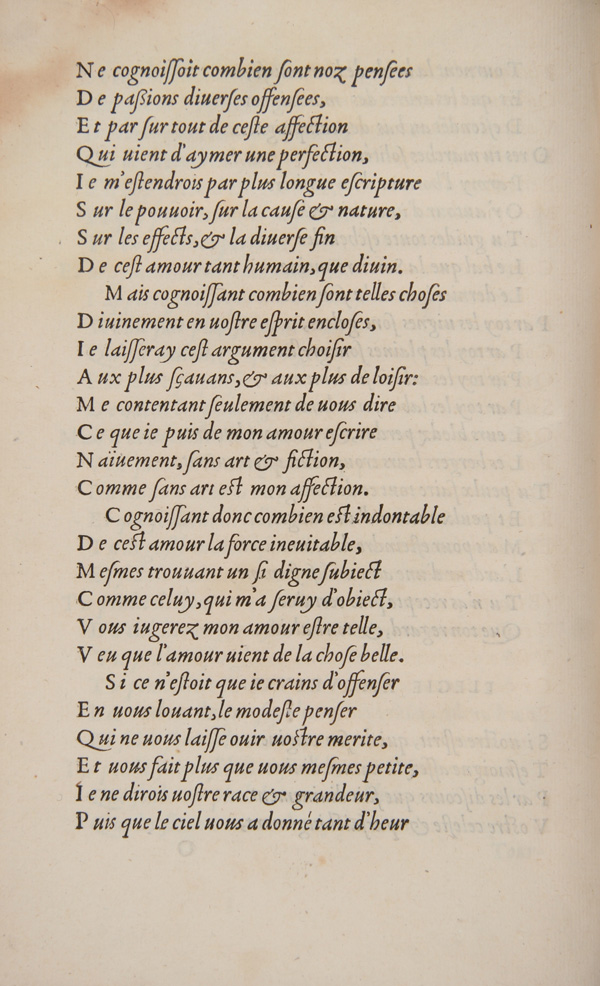 Ne cognoiſſoit combien ſont noz penſees
De paſsions diuerſes offenſees,
Et par ſur tout de ceſte affection
Qui uient d'aymer une perfection,
Ie m'eſtendrois par plus longue eſcripture
Sur le pouuoir, ſur la cauſe & nature,
Sur les effects, & la diuerſe fin
De ceſt amour tant humain, que diuin.
Mais cognoiſſant combien ſont telles choſes
Diuinement en uoſtre eſprit encloſes,
Ie laiſſeray ceſt argument choiſir
Aux plus ſçauans, & aux plus de loiſir:
Me contentant ſeulement de uous dire
Ce que ie puis de mon amour eſcrire
Naïuement, ſans art & fiction,
Comme ſans art eſt mon affection.
Cognoiſſant donc combien eſt indontable
De ceſt amour la force ineuitable,
Meſmes trouuant un ſi digne ſubiect
Comme celuy, qui m'a ſeruy d'obiect,
Vous iugerez mon amour eſtre telle,
Veu que l'amour uient de la choſe belle.
Si ce n'eſtoit que ie crains d'offenſer
En uous louant, le modeſte penſer
Qui ne uous laiſſe ouir uoſtre merite,
Et uous fait plus que uous meſmes petite,
Ie ne dirois uoſtre race & grandeur,
Puis que le ciel uous a donné tant d'heur